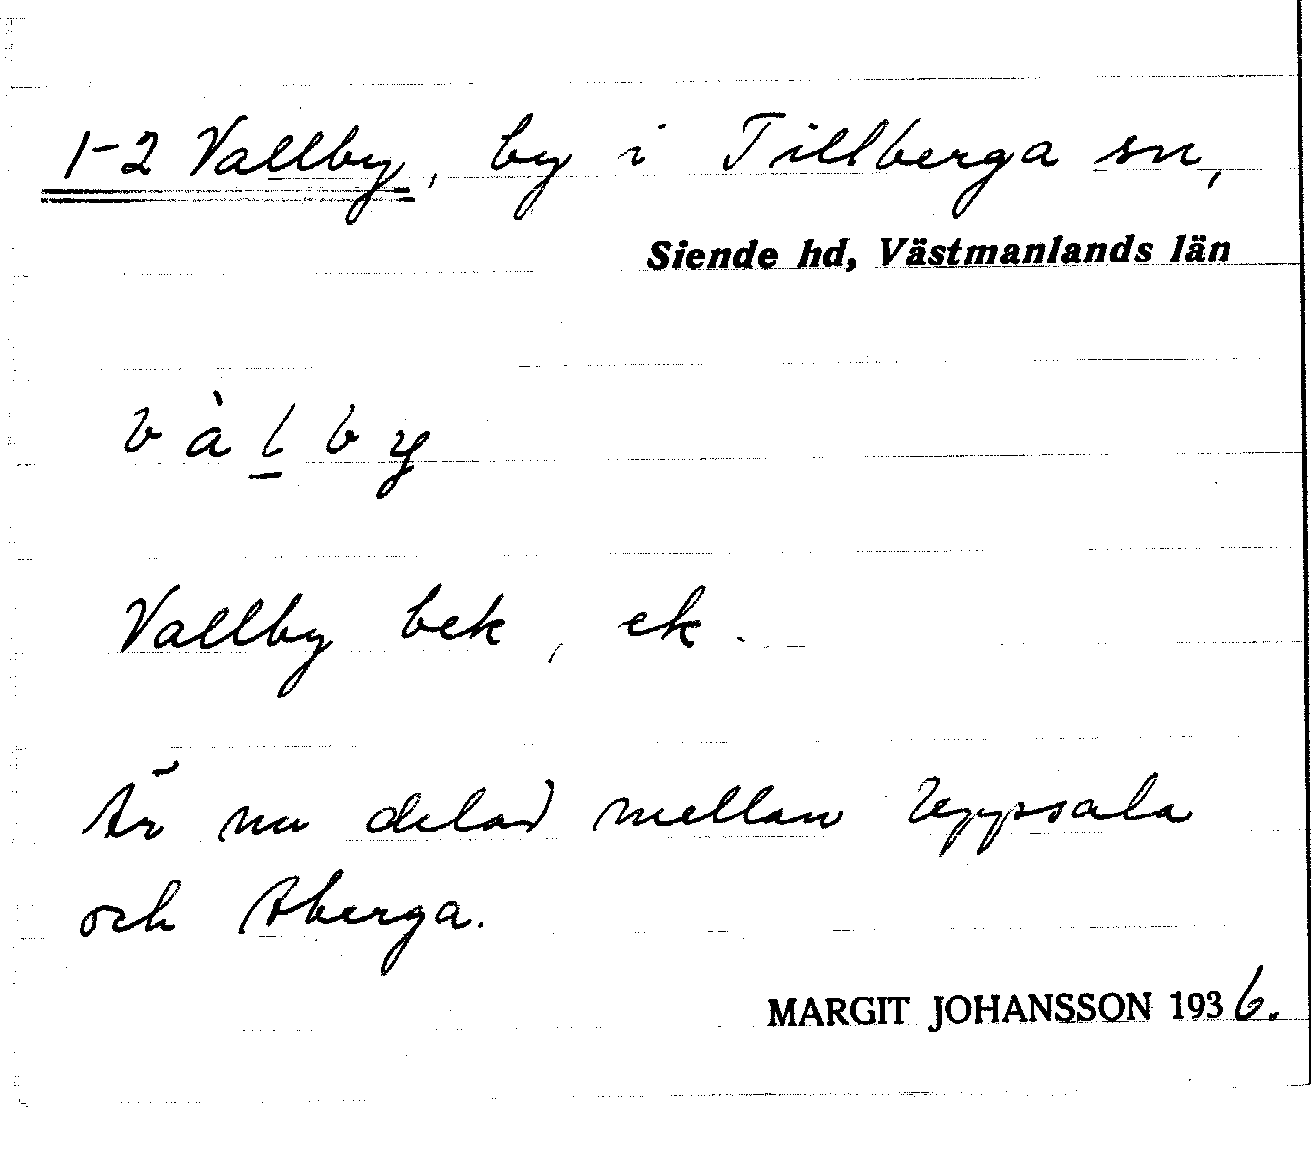 1-2 Vallby, by i Tillberga sn,
Siende hd, Västmanlands län
v à l b y
Vallby bek, ek.
Är nu delad mellan Uppsala
och Aberga.
MARGIT JOHANSSON 1936.